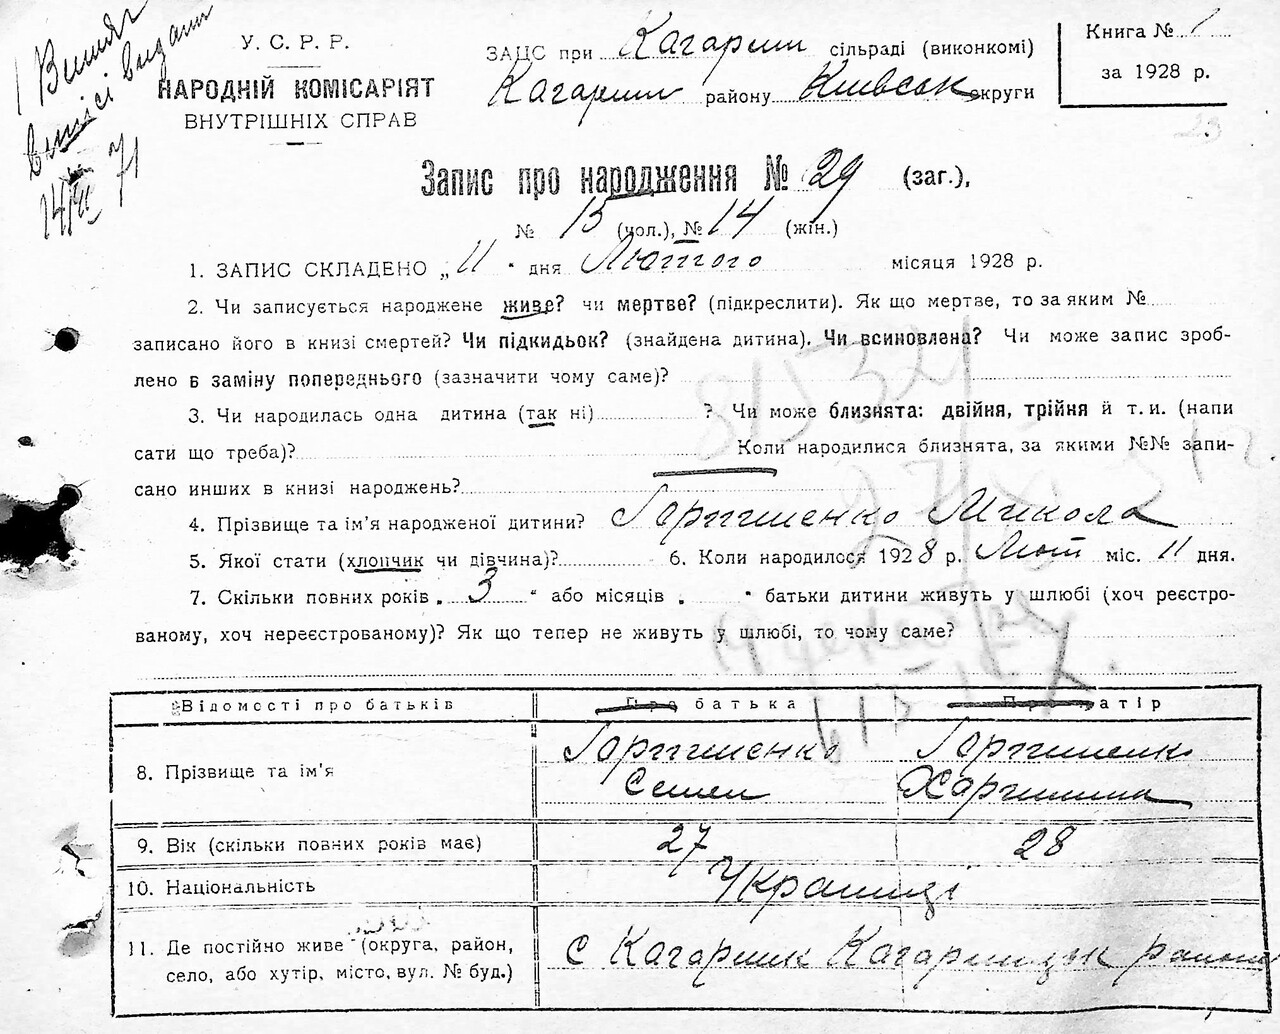 У. С. Р. Р.
НАРОДНІЙ КОМІСАРІЯТ
ВНУТРІШНІХ СПРАВ
ЗАЦС при Кагарлик сільраді (виконкомі)
Кагарлик району Київськ округи
Книга № 1
за 1928 р.
23
Запис про народження № 29 (заг.),
№ 15 (чол.), № 14 (жін.)
1. ЗАПИС СКЛАДЕНО „ 11 " дня Лютого місяця 1928 р.
2. Чи записується народжене живе? чи мертве? (підкреслити). Як що мертве, то за яким №
записано його в книзі смертей? Чи підкидьок? (знайдена дитина). Чи всиновлена? Чи може запис зроб-
лено в заміну попереднього (зазначити чому саме)?
3. Чи народилась одна дитина (так ні) ? Чи може близнята: двійня, трійня й т. и. (напи
сати що треба)? Коли народилися близнята, за якими №№ запи-
сано инших в книзі народжень?
4. Прізвище та ім'я народженої дитини? Микола
5. Якої стати (хлопчик чи дівчина)? 6. Коли народилося 1928 р. Лют міс. 11 дня.
7. Скільки повних років „ 3 " або місяців „ " батьки дитини живуть у шлюбі (хоч реєстро-
ваному, хоч нереєстрованому)? Як що тепер не живуть у шлюбі, то чому саме?
Відомості про батьків Про батька Про матір
8. Прізвище та ім'я
Семен
9. Вік (скільки повних років має) 27 28
10. Національність Українці
11. Де постійно живе (округа, район,
село, або хутір, місто, вул. № буд.)
с Кагарлик Кагарлицьк району